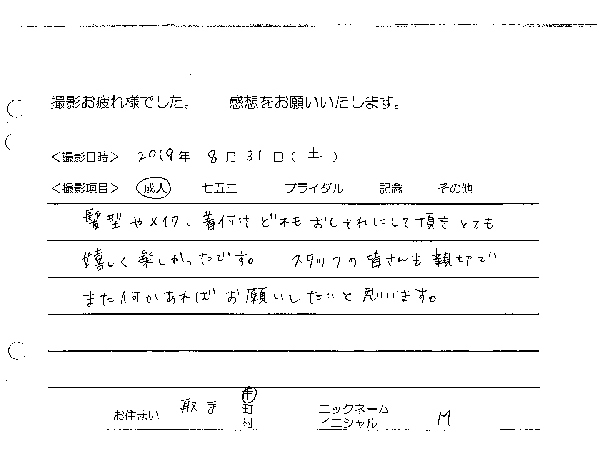 撮影お疲れ様でした。 感想をお願いいたします。
<撮影日時> 2019年 8月 31日(土)
<撮影項目> 成人 七五三 ブライダル 記念 その他
髪型やメイク、着付けどれもおしゃれにして頂きとても
嬉しく楽しかったです。 スタッフの皆さんも親切で
また何かあればお願いしたいと思います。
お住まい 取手 市 町 村 ニックネーム イニシャル M